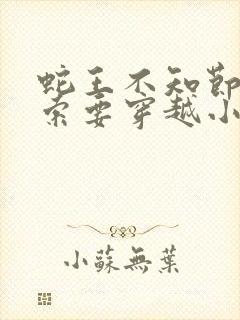 蛇王不知節
索要穿越小
小蘇無葉